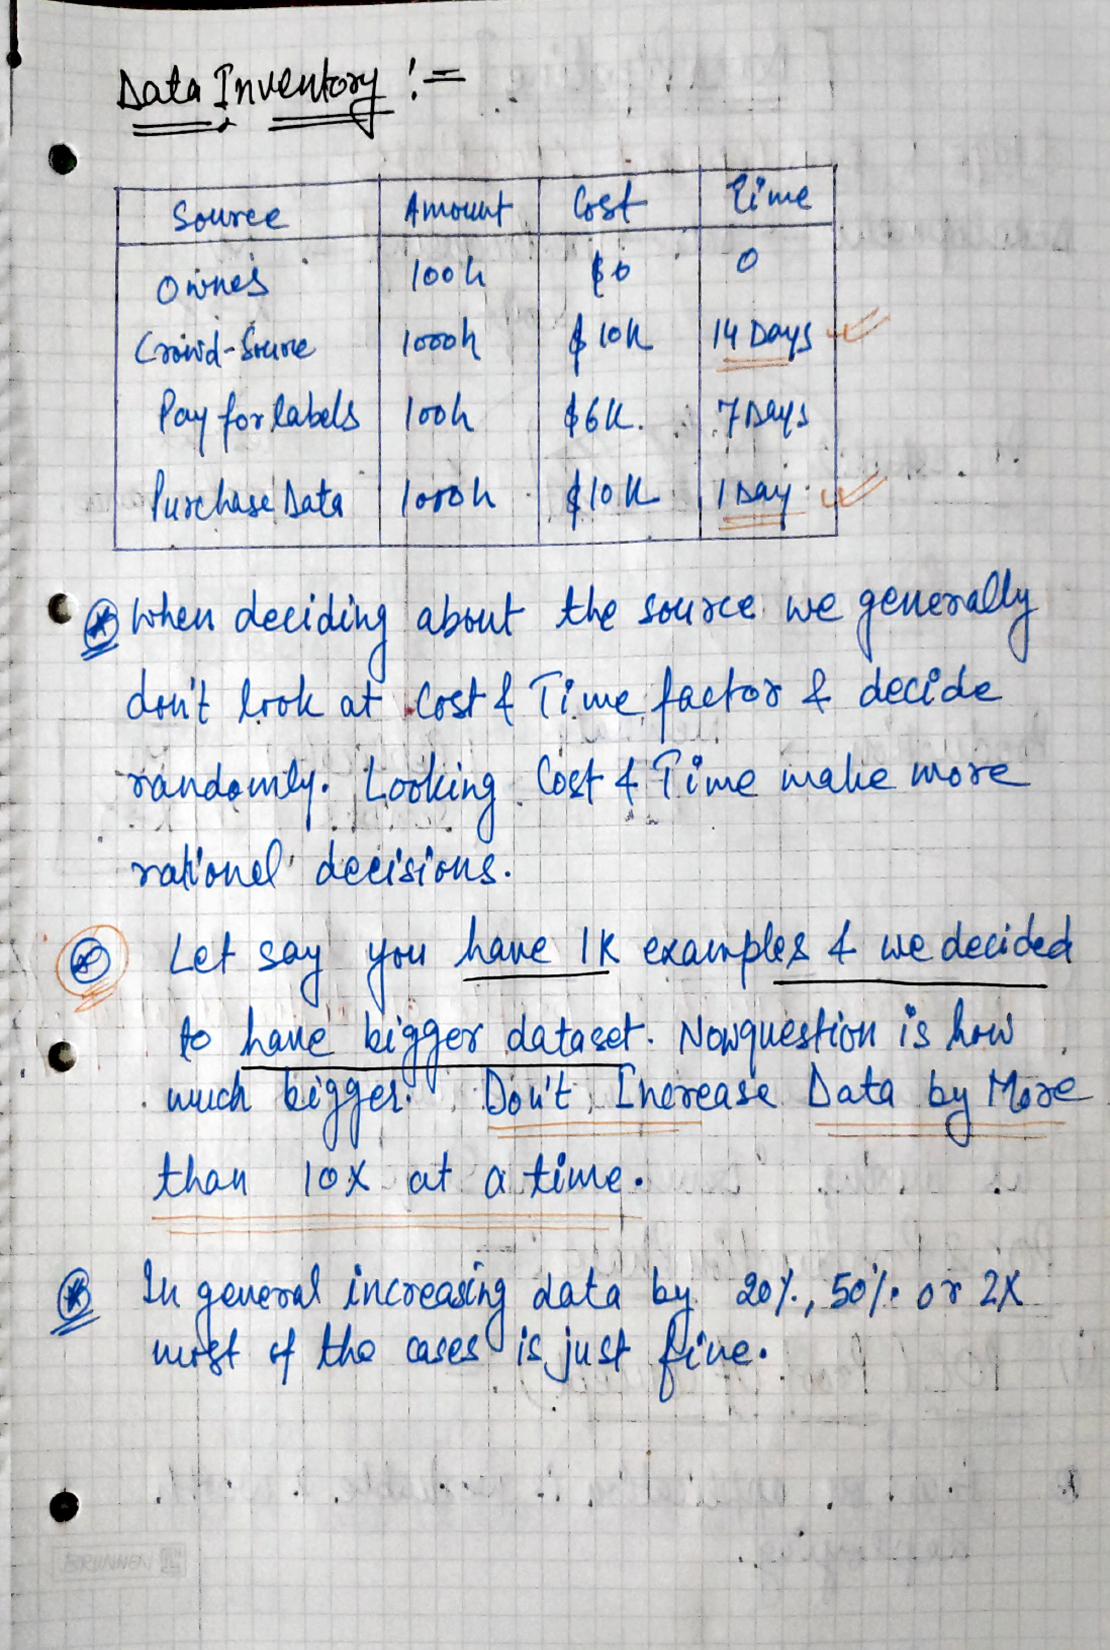 Data Inventory :=
Source Amount Cost Time
Owned 100h $0 0
Crowd-Source 1000h $10K 14 Days
Pay for labels 100h $6K. 7 Days
Purchase Data 1000h $10K 1 Day
When deciding about the source we generally
don't look at Cost & Time factor & decide
randomly. Looking Cost & Time make more
rational decisions.
Let say you have 1K examples & we decided
to have bigger dataset. Now question is how
much bigger. Don't Increase Data by More
than 10X at a time.
In general increasing data by 20%, 50% or 2X
most of the cases is just fine.
BRUNNEN